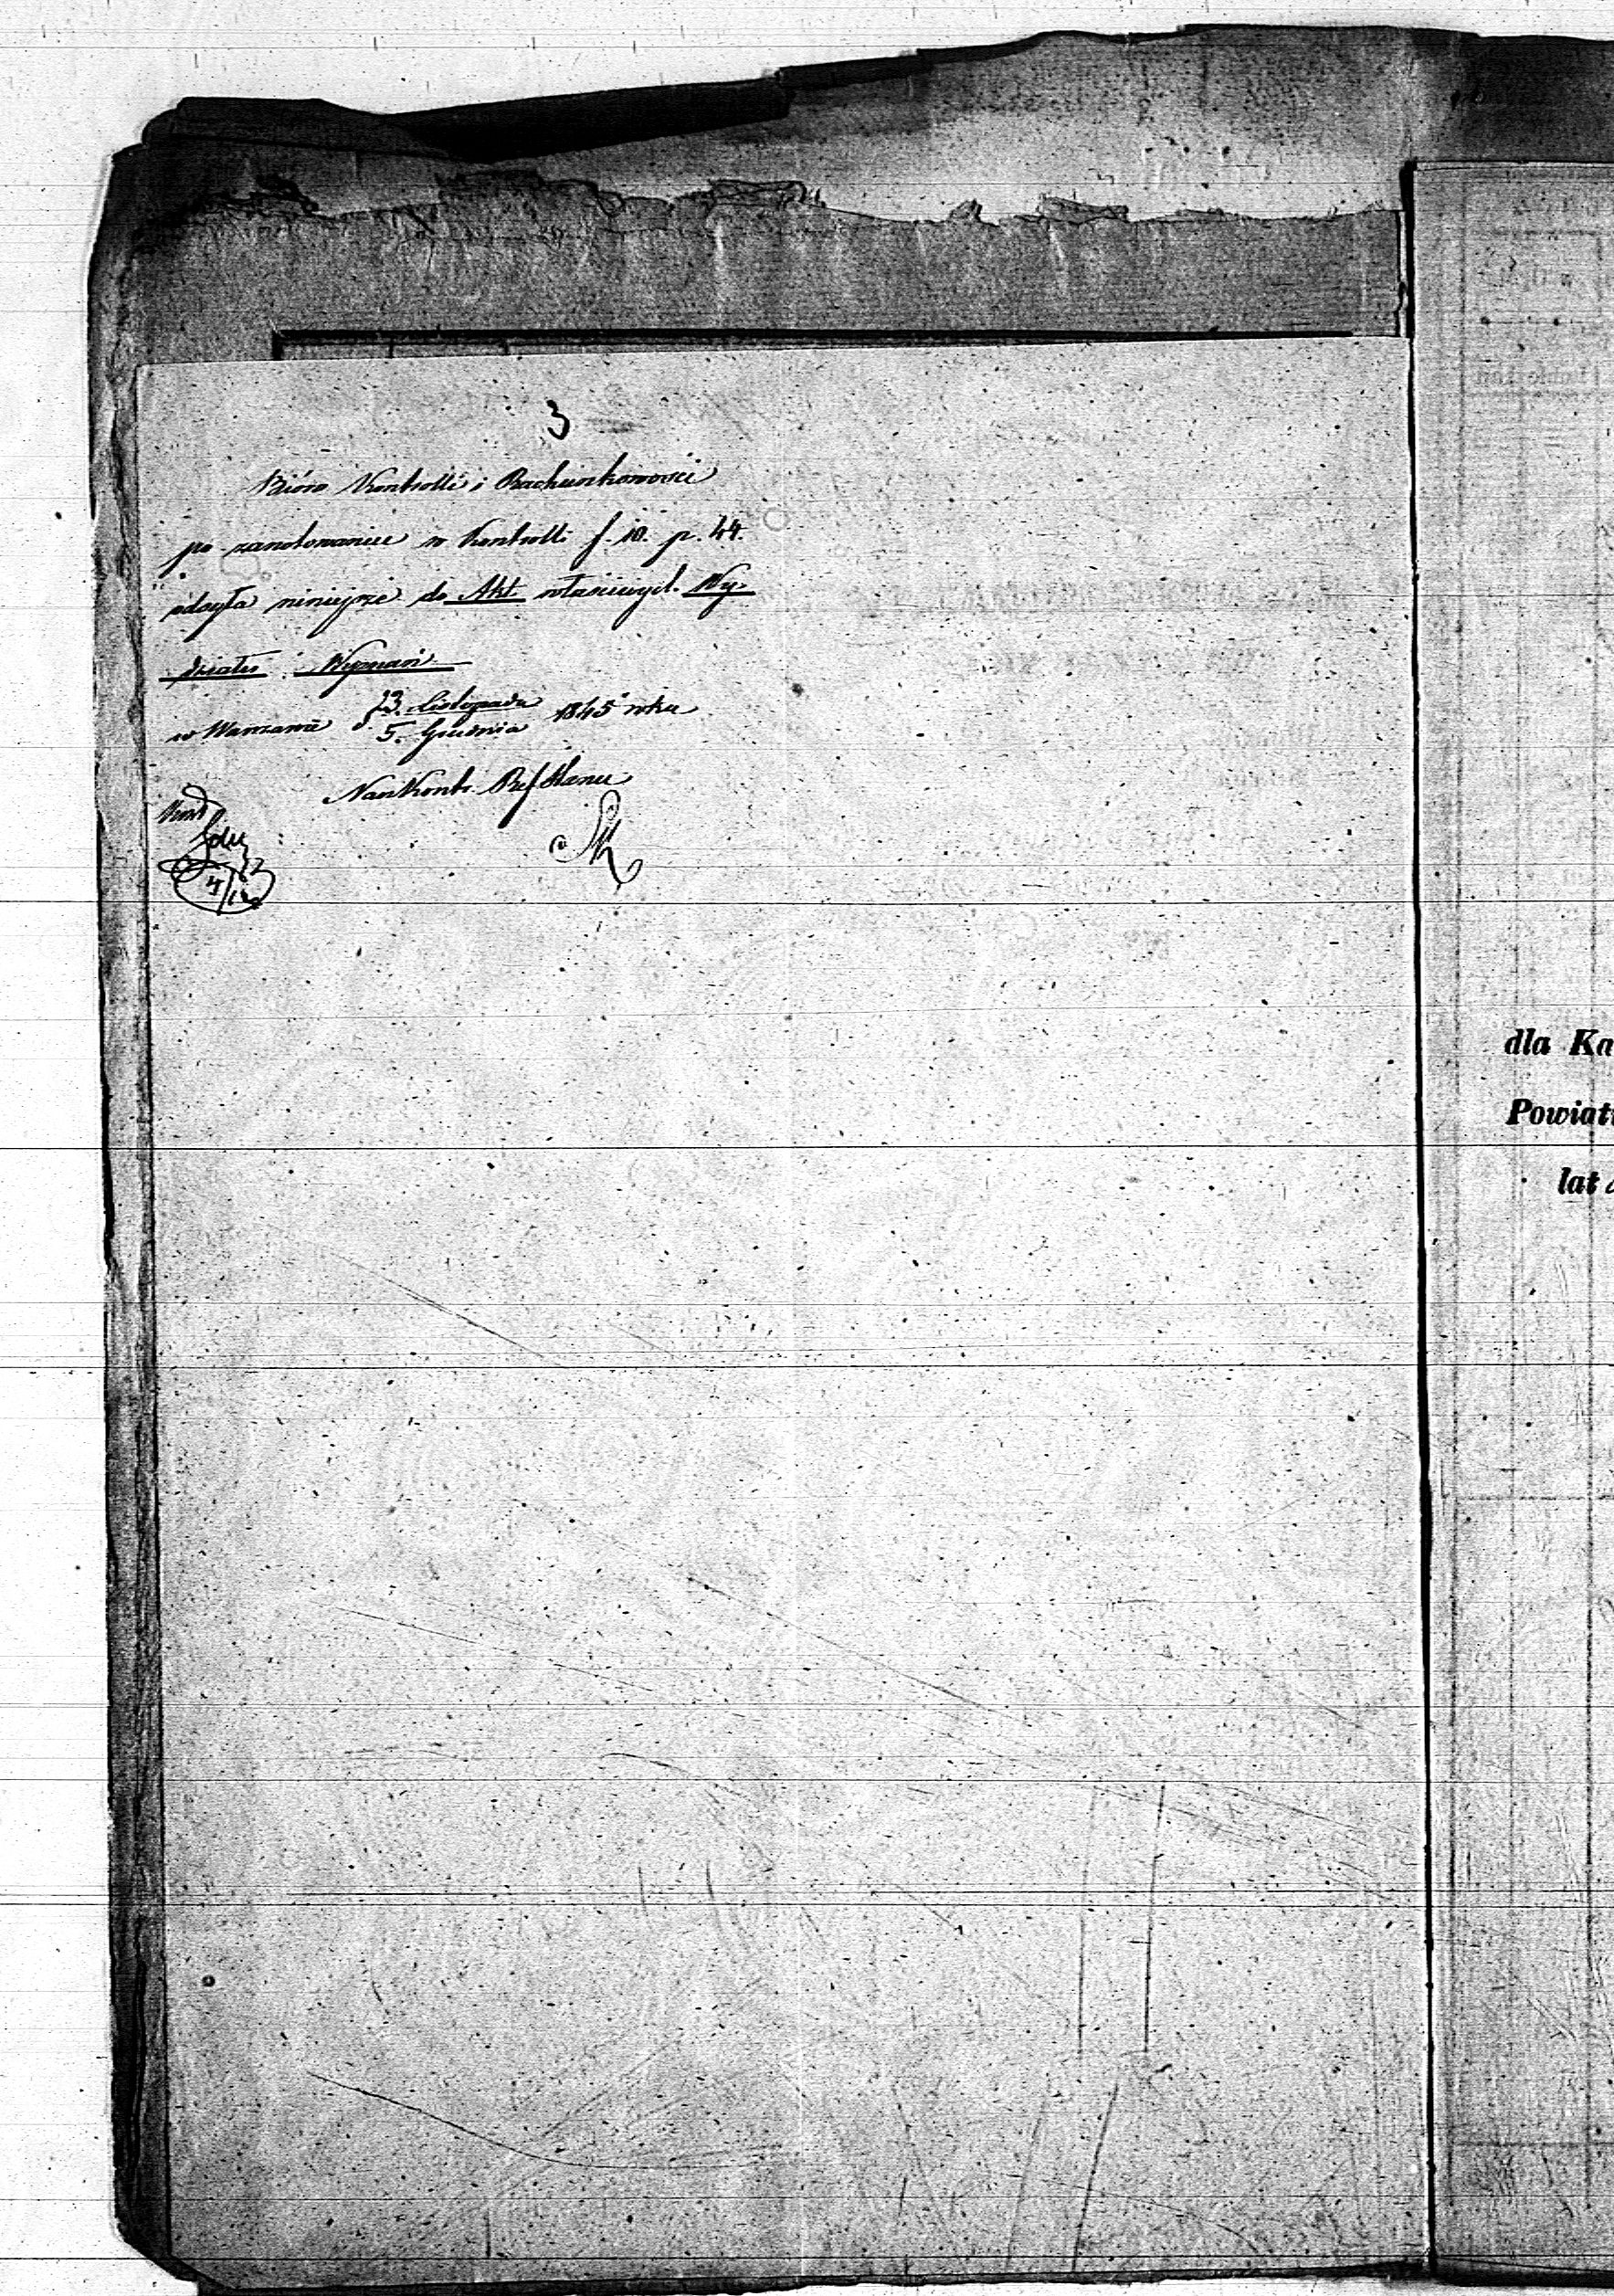 3
Bióro Kontrolli i Rachunkowości
po zanotowaniu w Kontrolli f. 10. p. 44.
odsyła niniejsze do Akt właściwych Wy-
działu Wyznań
w Warszawie d. 23. Listopada
5. Grudnia 1845 roku
4/12
dla Ka
Powiat
lat